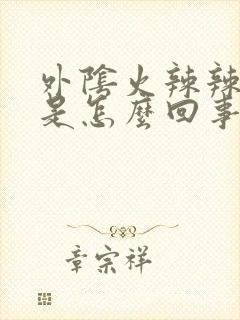 外陰火辣辣
是怎麼回事
章宗祥